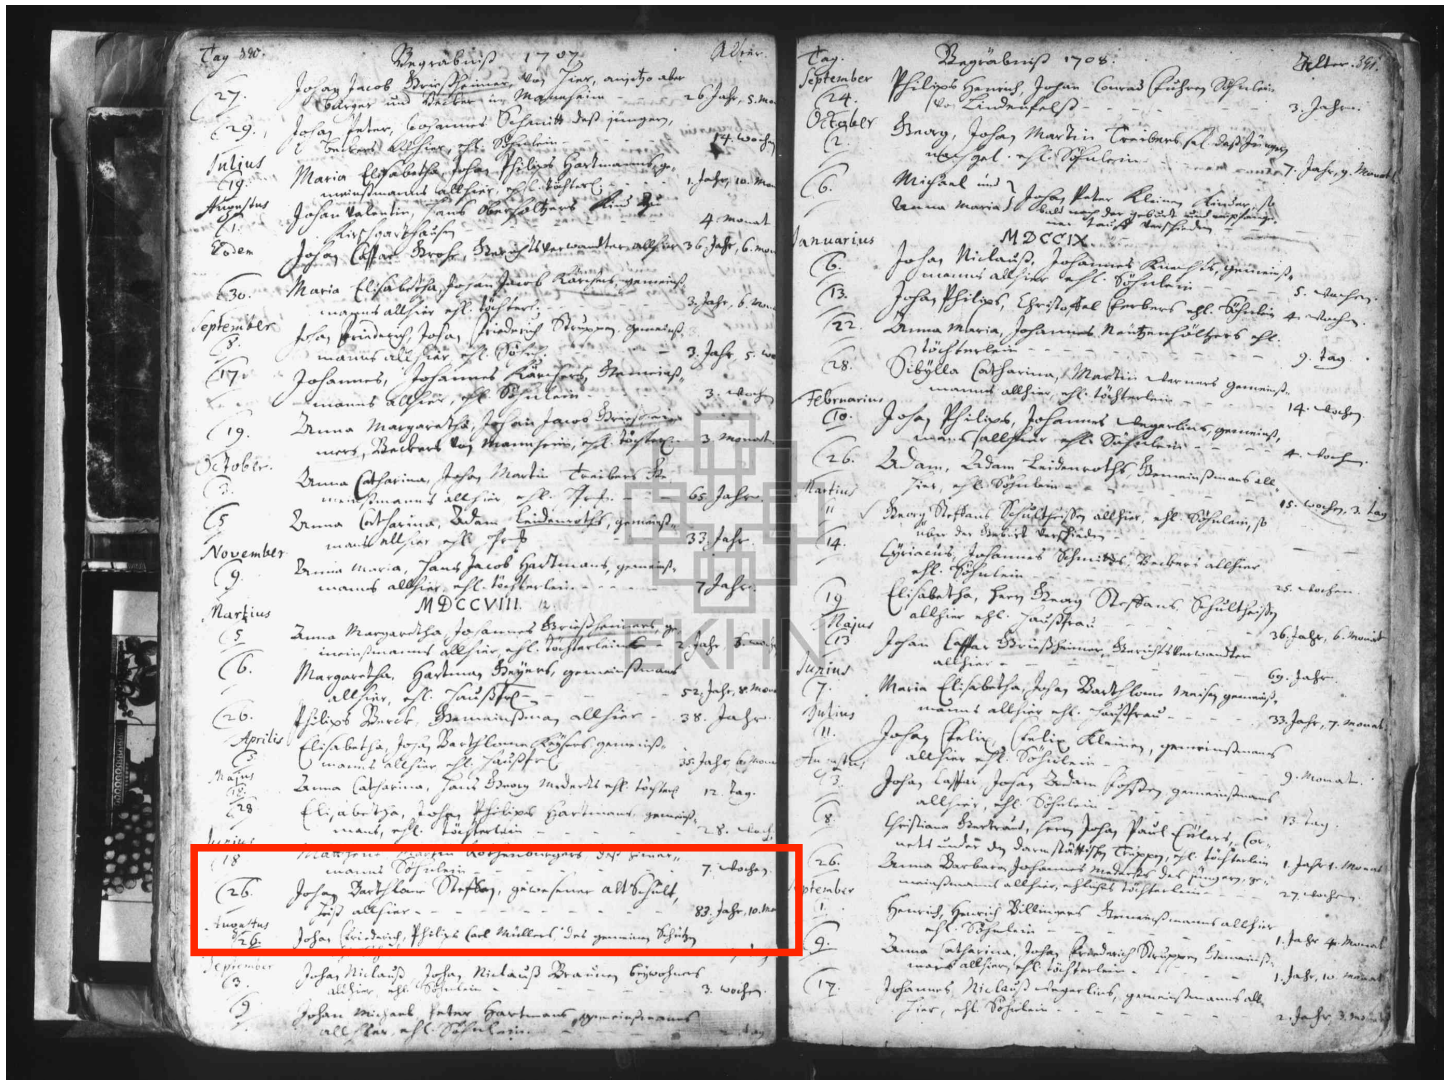 Tag 390. Begräbnuß 1707 Alter.
27. Johan Jacob Brießheimer von hier, anjetzo aber
burger und Becker in Manheim 26 Jahr, 5. Mo
29. Johan Peter, Johannes Schmitt deß jüngern,
Beckers allhier, ehl. Söhnlein 14. wochen
Julius
19. Maria Elisabetha, Johan Philips Hartmanns, ge-
meinßmanns allhier, ehl. töchterl. 1. Jahr, 10. Mon
Augustus
1. Johan Valentin, Hans Oberholtzers Kind
Kirschgarthausen 4 monat
Eodem Johan Caspar Grohe, Gerichtsverwandter allhier 36. Jahr, 6. mon
30. Maria Elisabetha, Johan Jacob Kärchers, gemeinß-
manns allhier ehl. töchterl. 3. Jahr, 6. Mon
September
8. Johan Friederich, Johan Friederich Struppen, gemeinß-
manns allhier, ehl. Söhnl. 3. Jahr, 5. wo
17. Johannes, Johannes Kärchers, Gemeinß-
manns allhier, ehl. Söhnlein 3. Woch
19. Anna Margaretha, Johan Jacob Brießhei-
mers, Beckers von Mannheim, ehl. töchterl. 3 monat.
October.
2. Anna Catharina, Johan Martin Treibers Ge-
meinßmanns allhier ehl. 65 Jahr.
5. Anna Catharina, Adam Leidenroths, gemeinß-
manns allhier ehl. 33. Jahr.
November
9. Anna Maria, Hans Jacob Hartmans, gemeinß-
manns allhier, ehl. töchterlein 7 Jahr.
MDCCVIII
Martius
5. Anna Margaretha, Johannes Brießheimers, ge-
meinßmanns allhier, ehl. töchterlein 2. Jahr
6. Margaretha, Hartman Meyers, gemeinßmanns
allhier, ehl. Haußfr. 52. Jahr, 8. mon
26. Philips Burck, Gemeinßman allhier 38. Jahr.
Aprilis
Elisabetha, Johan Barthlome Kaysers, gemeinß-
manns allhier ehl. Haußfr. 35. Jahr 6. mon
Majus
18. Anna Catharina, Hans Georg Mederts ehl. töchterl. 12. tag.
28 Elisabetha, Johan Philips Hartmans, gemeinß-
mans, ehl. töchterlein 28. Woch.
Junius
18 Rothenburgers deß zimer-
manns Söhnlein 7. wochen.
26. Johan Barthlome Steffan, gewesener alt Schult-
heiß allhier 83. Jahr, 10. Mo
Augustus
26. Johan Friederich, Philips Carl Müllers, des gemeinen Schützen
September
3. Johan Niclauß, Johan Niclauß Braunen beywohners
allhier ehl. Söhnlein 3. wochen.
9. Johan Michael, Peter Hartmans, gemeinßmanns
allhier, ehl. Söhnlein. tag
Tag. Begräbnuß 1708. Alter. 391.
September
24. Philips Henrich, Johan Conrad Söhnlein
von Lindenfelß 3. Jahr.
October
2. Georg, Johan Martin Treibers sel. deß jüngern
nachgel. ehl. Söhnlein 7. Jahr, 9. Monat
6. Michael und Anna Maria, Johan Peter Kleinen Kinder, so
bald nach der geburt und empfange-
ner tauff verschieden
MDCCIX.
Januarius
6. Johan Niclauß, Johannes Knechts, gemeinß-
manns allhier ehl. Söhnlein 5. wochen.
13. Johan Philips, Christoffel Ferbers ehl. Söhnlein 4. wochen.
22. Anna Maria, Johannes Neutzenhöltzers ehl.
töchterlein 9. tag
28. Sibylla Catharina, Martin Werners gemeinß-
manns allhier, ehl. töchterlein 14. wochen
Februarius
10. Johan Philips, Johannes Wegerlins, gemeinß-
mans allhier ehl. Söhnlein 4. woch.
26. Adam, Adam Leidenroths, Gemeinßmans all-
hier, ehl. Söhnlein 15. wochen, 3. tag
Martius
11 Georg Steffans Schultheißen allhier, ehl. Söhnlein, so
über der Geburt verschieden
14. Cyriacus, Johannes Schmidts, Beckers allhier
ehl. Söhnlein 25. wochen
19 Elisabetha, Herrn Georg Steffans, Schultheißen
allhier ehl. Haußfrau 36. Jahr, 6. Monat
Majus
13 Johan Caspar Brießheimer, Gerichtsverwandter
allhier 69. Jahr.
Junius
7. Maria Elisabetha, Johan Barthlome gemeinß-
manns allhier ehl. Haußfrau 33. Jahr, 7. monat
Julius
11. Johan Felix, Felix Kleinen, gemeinßmans
allhier ehl. Söhnlein 9. Monat.
Augustus
3. Johan Caspar, Johan Adam gemeinßmans
allhier, ehl. Söhnlein 13 tag.
8. Christiana Gertraud, Herrn Johan Paul Eülers, Cor-
nets under den darmstättischen Truppen, ehl. töchterlein 1. Jahr 1. Monat
26. Anna Barbara, Johannes Mederts des jüngern, ge-
meinßmanns allhier, ehliches töchterlein 27 wochen.
September
1. Henrich, Henrich Billmeyers Gemeinßmanns allhier
ehl. Söhnlein 1. Jahr 4. Monat
9. Anna Catharina, Johan Friederich Struppen, Gemeinß-
mans allhier, ehl. töchterlein 1. Jahr, 10. monat
17. Johannes Niclauß Wegerlins, gemeinßmanns all-
hier, ehl. Söhnlein 2. Jahr, 3. monat
EKHN